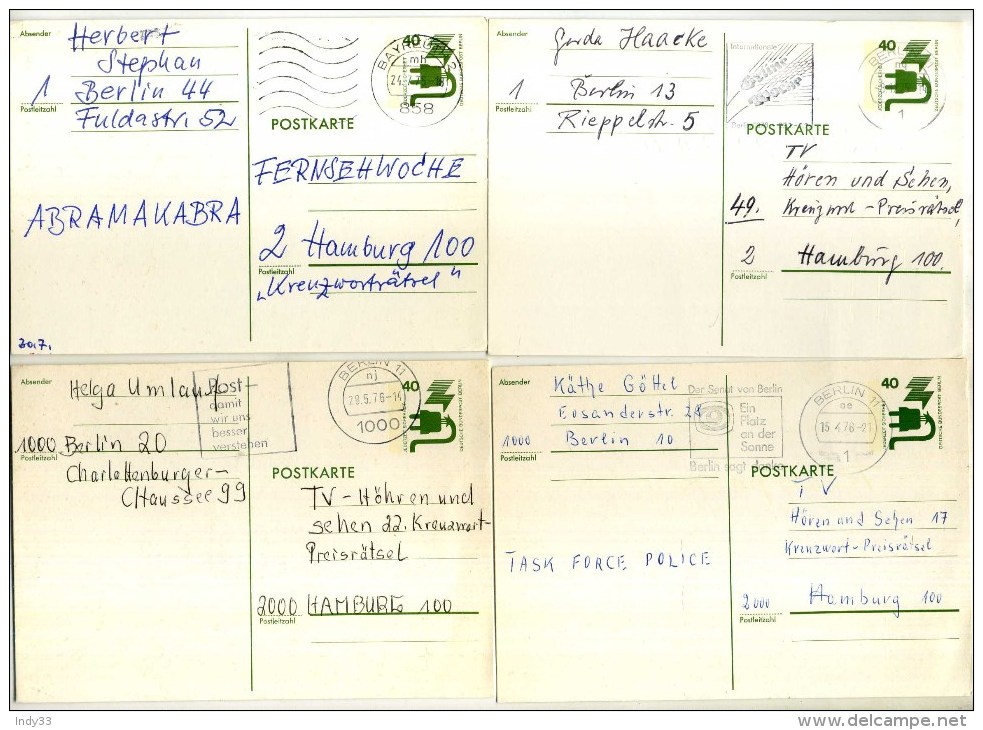 Absender
Herbert
Stephan
1 Berlin 44
Postleitzahl
Fuldastr. 52
40
858
POSTKARTE
FERNSEHWOCHE
ABRAMAKABRA
2 Hamburg 100
Postleitzahl
„Kreuzworträtsel"
30.7.
Absender
Gerda Haacke
1 Berlin 13
Postleitzahl
Rieppelstr. 5
40
1
POSTKARTE
TV
Hören und Sehen,
49. Kreuzwort-Preisrätsel,
2 Hamburg 100.
Postleitzahl
Absender
Helga Umlauf
1000 Berlin 20
Postleitzahl
Charlottenburger-
CHaussee 99
Post-
damit
wir uns
besser
verstehen
BERLIN 11
nj
28.5.76-14
1000
40
POSTKARTE
TV-Höhren und
sehen 22. Kreuzwort-
Preisrätsel
2000 HAMBURG 100
Postleitzahl
Absender
Käthe Göttel
Eosanderstr. 28
1000 Berlin 10
Postleitzahl
Der Senat von Berlin
Ein
Platz
an der
Sonne
Berlin sagt danke
BERLIN 11
15.4.76-21
1
40
POSTKARTE
TV
Hören und Sehen 17
Kreuzwort-Preisrätsel
TASK FORCE POLICE
2000 Hamburg 100
Postleitzahl
Indy33
www.delcampe.net